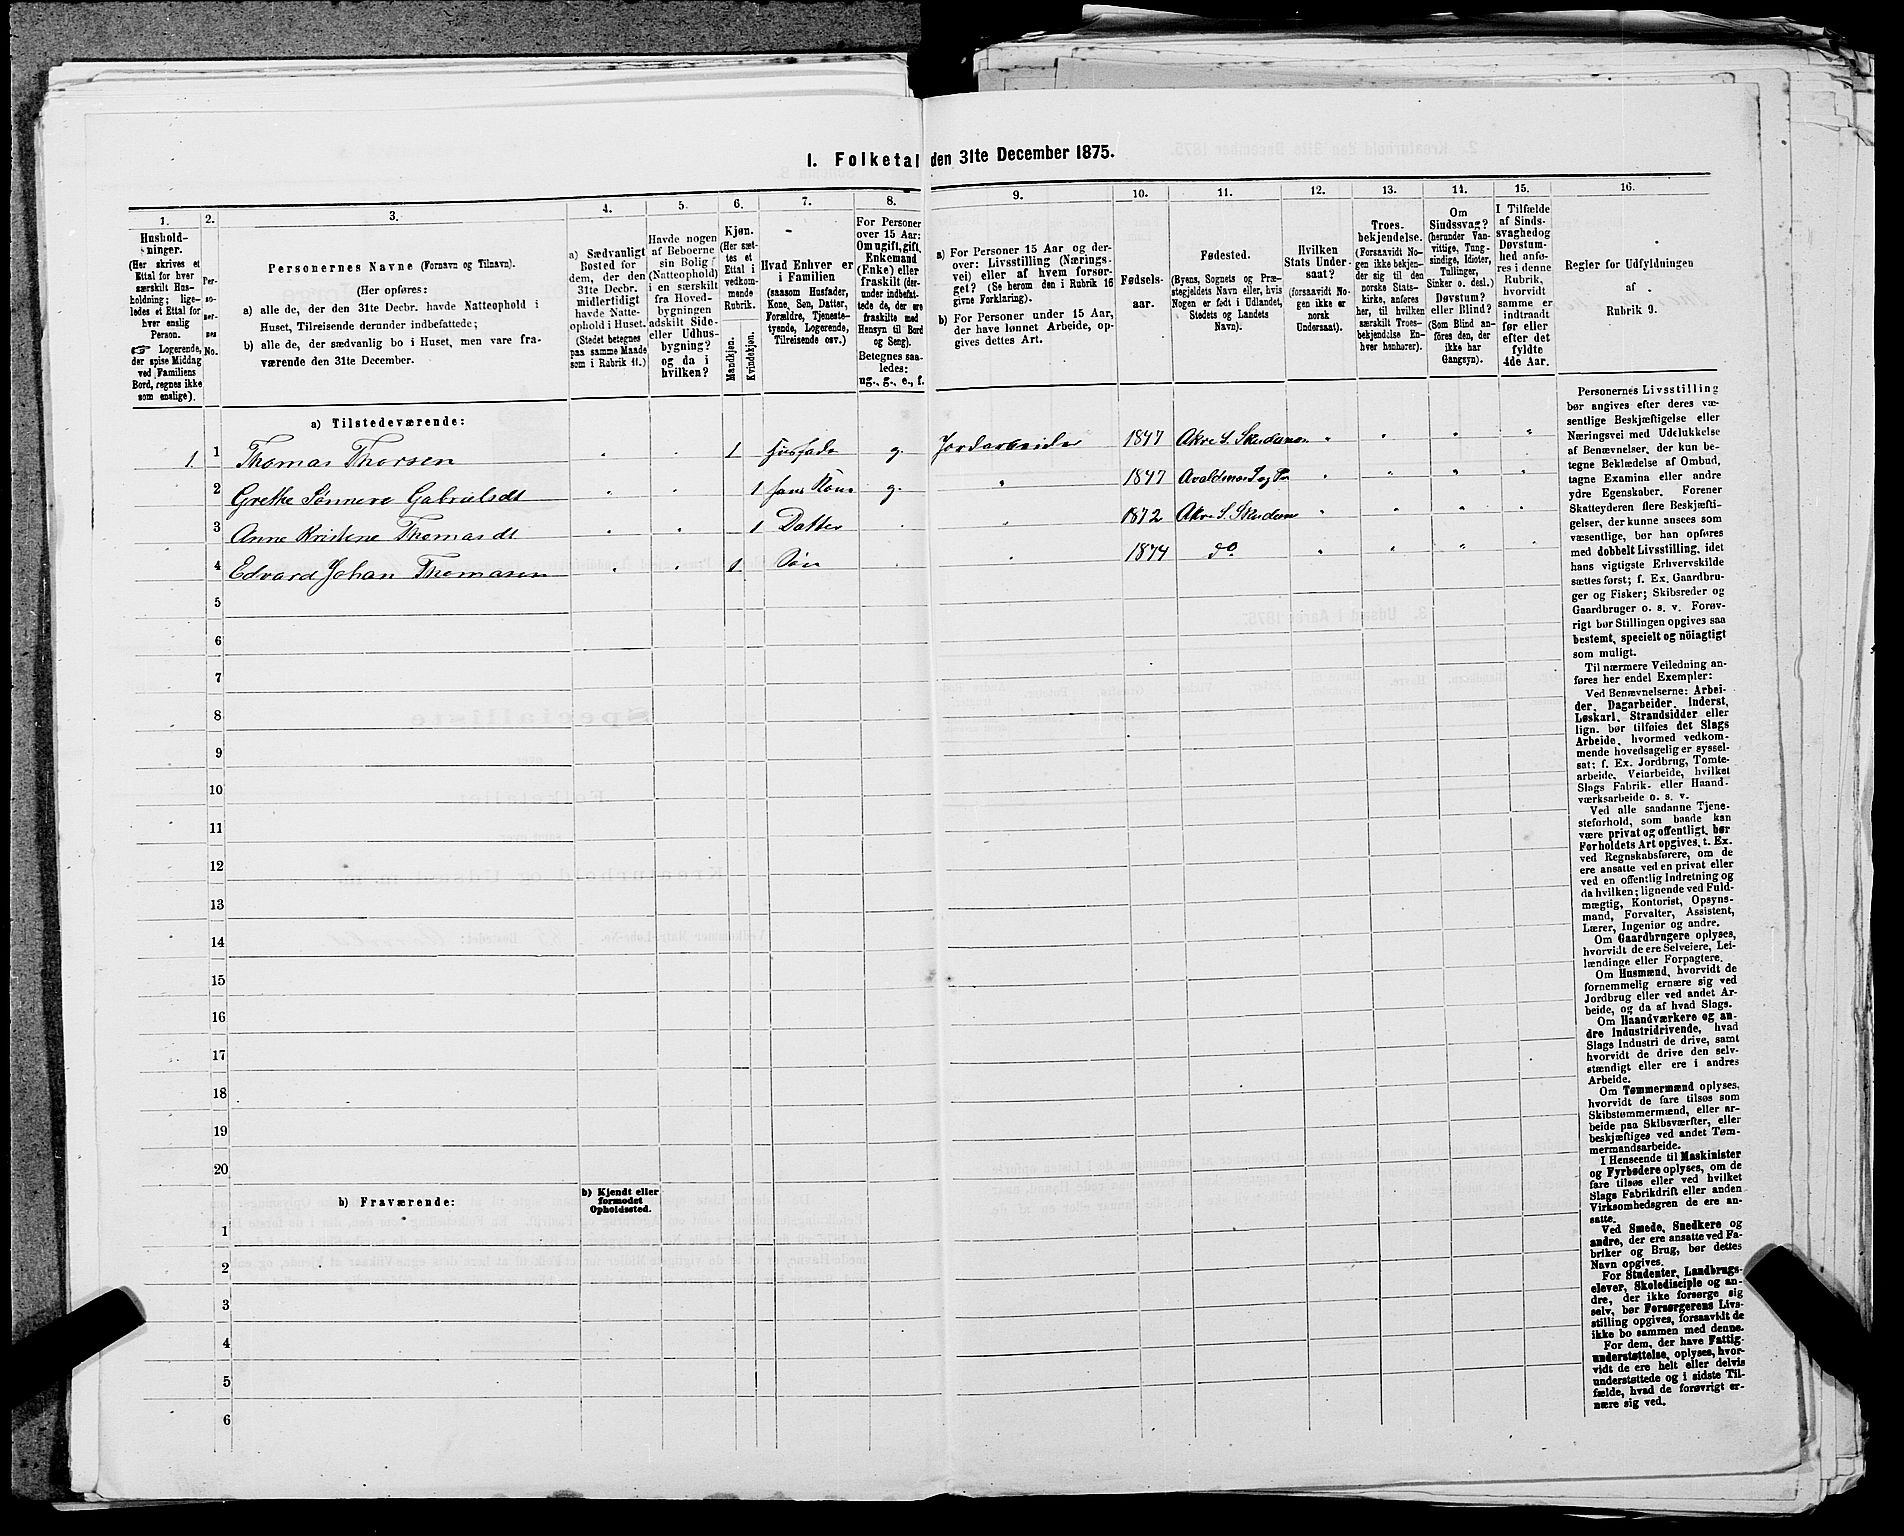 1. Folketal den 31te December 1875.
1. 2. 3. 4. 5. 6. 7. 8. 9. 10. 11. 12. 13. 14. 15. 16.
Hushold-
ninger.
(Her skrives et
Ettal for hver
særskilt Hus-
holdning; lige-
ledes et Ettal for
hver enslig
Person.
☞ Logerende,
der spise Middag
ved Familiens
Bord, regnes ikke
som enslige).
Per-
so-
ner-
nes
No.
Personernes Navne (Fornavn og Tilnavn).
(Her opføres:
a) alle de, der den 31te Decbr. havde Natteophold i
Huset, Tilreisende derunder indbefattede;
b) alle de, der sædvanlig bo i Huset, men vare fra-
værende den 31te December.
a) Sædvanligt
Bosted for
dem, der den
31te Decbr.
midlertidigt
havde Natte-
ophold i Huset.
(Stedet betegnes
paa samme Maade
som i Rubrik 11.)
Havde nogen
af Beboerne
sin Bolig
(Natteophold)
i en særskilt
fra Hoved-
bygningen
adskilt Side-
eller Udhus-
bygning?
og da i
hvilken?
Kjøn.
(Her sæt-
tes et
Ettal i
vedkom-
mende
Rubrik.
Mandkjøn.
Kvindekjøn.
Hvad Enhver er
i Familien
(saasom Husfader,
Kone, Søn, Datter,
Forældre, Tjeneste-
tyende, Logerende,
Tilreisende osv.)
For Personer
over 15 Aar:
Om ugift, gift,
Enkemand
(Enke) eller
fraskilt (der-
under indbefat-
tede de, der ere
fraskilte med
Hensyn til Bord
og Seng).
Betegnes saa-
ledes:
ug., g., e., f.
a) For Personer 15 Aar og der-
over: Livsstilling (Nærings-
vei) eller af hvem forsør-
get? (Se herom den i Rubrik 16
givne Forklaring).
b) For Personer under 15 Aar,
der have lønnet Arbeide, op-
gives dettes Art.
Fødsels-
aar.
Fødested.
(Byens, Sognets og Præ-
stegjeldets Navn eller, hvis
Nogen er født i Udlandet,
Stedets og Landets
Navn).
Hvilken
Stats Under-
saat?
(forsaavidt No-
gen ikke er
norsk
Undersaat).
Troes-
bekjendelse.
(Forsaavidt No-
gen ikke bekjen-
der sig til den
norske Stats-
kirke, anføres
her, til hvilken
særskilt Troes-
bekjendelse En-
hver henhører).
Om
Sindssvag?
(herunder Van-
vittige, Tung-
sindige, Idioter,
Tullinger,
Sinker o. desl.)
Døvstum?
eller Blind?
(Som Blind an-
føres den, der
ikke har
Gangsyn).
I Tilfælde
af Sinds-
svaghed og
Døvstum-
hed anfø-
res i denne
Rubrik,
hvorvidt
samme er
indtraadt
før eller
efter det
fyldte
4de Aar.
Regler for Udfyldningen
af
Rubrik 9.
a) Tilstedeværende:
1. 1 Thomas Thorsen 1 g. 1847
2 Grethe Sønneve Gabrielsdt 1 g. 1847
3 Anne Kristene Thomasdt 1 Datter 1872
4 Edvard Johan Thomasen 1 Søn 1874 do
5
6
7
8
9
10
11
12
13
14
15
16
17
18
19
20
b) Fraværende:
b) Kjendt eller
formodet
Opholdssted.
1
2
3
4
5
6
Personernes Livsstilling
bør angives efter deres væ-
sentlige Beskjæftigelse eller
Næringsvei med Udelukkelse
af Benævnelser, der kun be-
tegne Beklædelse af Ombud,
tagne Examina eller andre
ydre Egenskaber. Forener
Skatteyderen flere Beskjæfti-
gelser, der kunne ansees som
væsentlige, bør han opføres
med dobbelt Livsstilling, idet
hans vigtigste Erhvervskilde
sættes først; f. Ex. Gaardbru-
ger og Fisker; Skibsreder og
Gaardbruger o. s. v. Forøv-
rigt bør Stillingen opgives saa
bestemt, specielt og nöiagtigt
som muligt.
Til nærmere Veiledning an-
føres her endel Exempler:
Ved Benævnelserne: Arbei-
der, Dagarbeider, Inderst,
Løskarl, Strandsidder eller
lign. bør tilføies det Slags
Arbeide, hvormed vedkom-
mende hovedsagelig er syssel-
sat; f. Ex. Jordbrug, Tomte-
arbeide, Veiarbeide, hvilket
Slags Fabrik- eller Haand-
værksarbeide o. s. v.
Ved alle saadanne Tjene-
steforhold, som baade kan
være privat og offentligt, bør
Forholdets Art opgives, t. Ex.
ved Regnskabsførere, om de
ere ansatte ved en privat eller
ved en offentlig Indretning og
da hvilken; lignende ved Fuld-
mægtig, Kontorist, Opsyns-
mand, Forvalter, Assistent,
Lærer, Ingeniør og andre.
Om Gaardbrugere oplyses,
hvorvidt de ere Selveiere, Lei-
lændinge eller Forpagtere.
Om Husmænd, hvorvidt de
fornemmelig ernære sig ved
Jordbrug eller ved andet Ar-
beide, og da af hvad Slags.
Om Haandværkere og an-
dre Industridrivende, hvad
Slags Industri de drive, samt
hvorvidt de drive den selv-
stændigt eller ere i andres
Arbeide.
Om Tømmermænd oplyses,
hvorvidt de fare tilsøs som
Skibstømmermænd, eller ar-
beide paa Skibsværfter, eller
beskjæftiges ved andet Tøm-
mermandsarbeide.
I Henseende til Maskinister
og Fyrbødere oplyses, om de
fare tilsøs eller ved hvilket
Slags Fabrikdrift eller anden
Virksomhedsgren de ere an-
satte.
Ved Smede, Snedkere og
andre, der ere ansatte ved Fa-
briker og Brug, bør dettes
Navn opgives.
For Studenter, Landbrugs-
elever, Skoledisciple og an-
dre, der ikke forsørge sig
selv, bør Forsørgerens Livs-
stilling opgives, forsaavidt de
ikke bo sammen med denne.
For dem, der have Fattig-
understøttelse, oplyses, hvor-
vidt de ere helt eller delvis
understøttede og i sidste Til-
fælde, hvad de forøvrigt er-
nære sig ved.